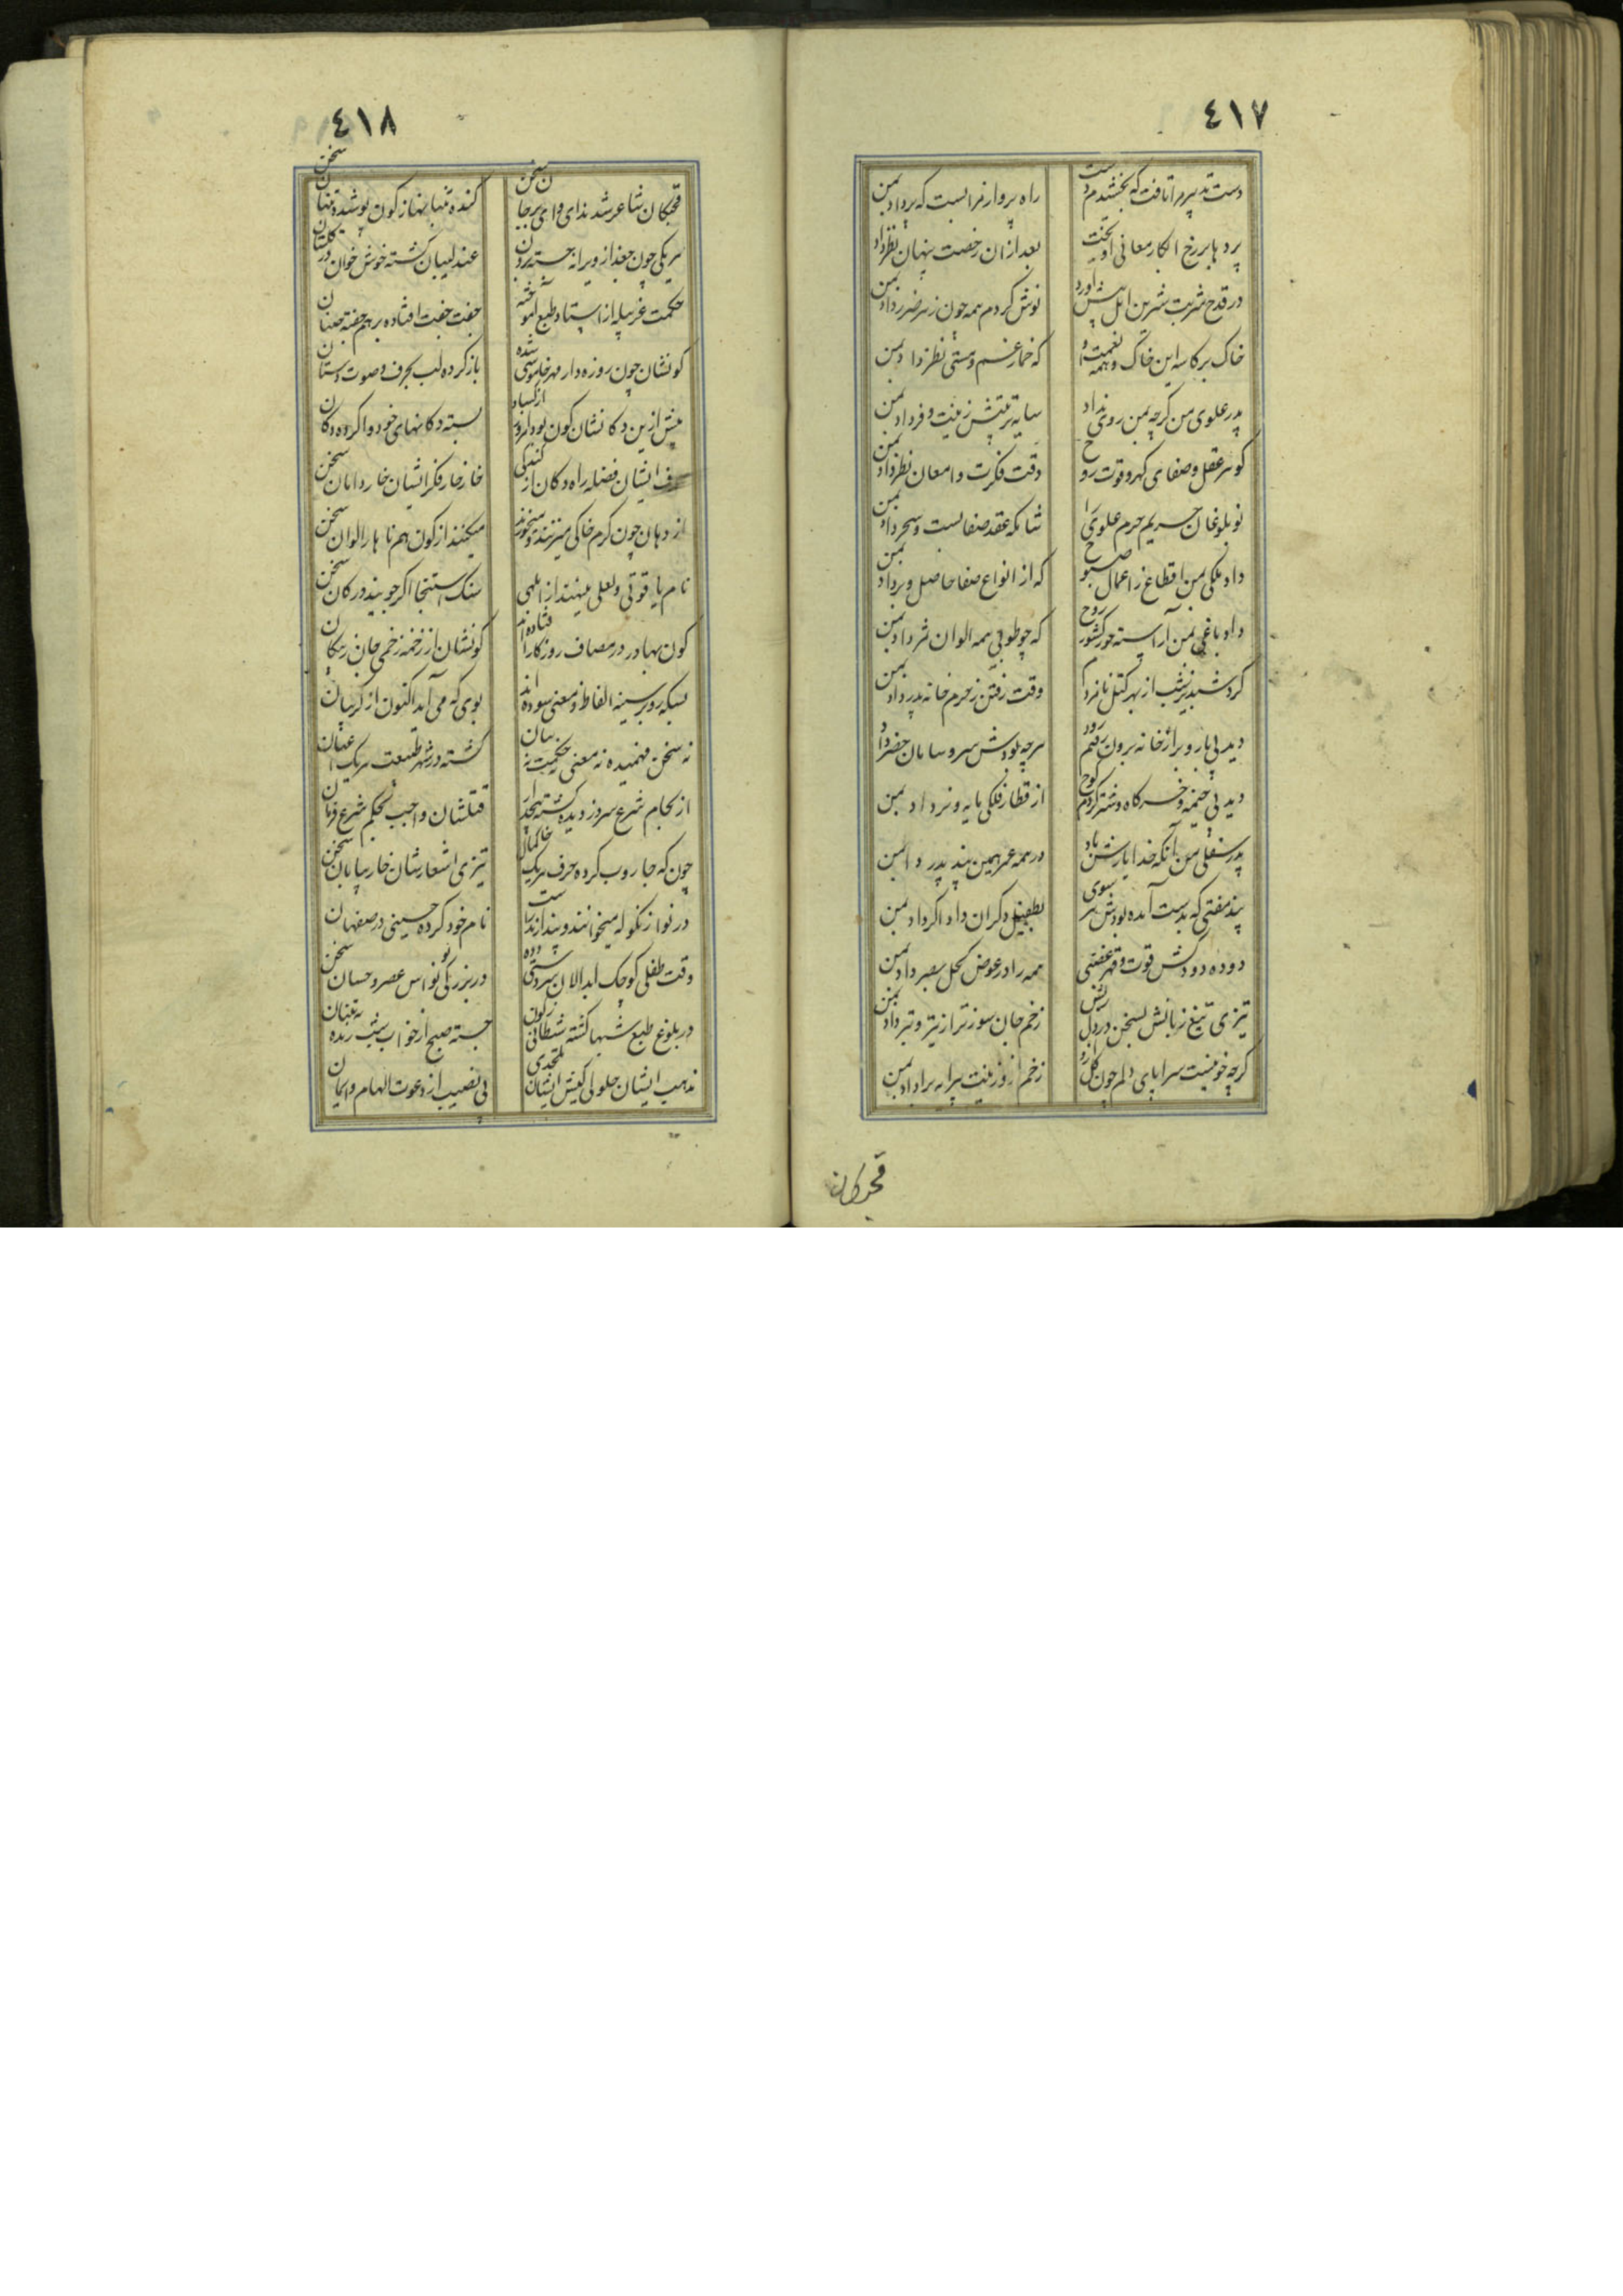 ٤١٧
دست تدبیر مرا تافت که بخشندم دست راه پرواز مرا بست که پر داد بمن
پردها بر رخ ابکار معانی آویخت بعد از آن رخصت پنهان نظر داد بمن
در قدح شربت شیرین امل پیش آورد نوش کردم همه چون زهر ضرر داد بمن
خاک بر کاسه این خاک و همه نعمت او که خمار غم و مستی نظر داد بمن
پدر علوی من گرچه بمن روی نداد سایه تربیتش زینت و فر داد بمن
گوهر عقل و صفای گهر و قوت روح دقت فکرت و امعان نظر داد بمن
نوبلوغان حریم حرم علوی را شانکه عقد صفا بست و سحر داد بمن
داد ملکی بمن اقطاع ز اعمال صبوح که از انواع صفا حاصل و بر داد بمن
داد باغی بمن آراسته در کشور روح که چو طوبی همه الوان ثمر داد بمن
کرد شبدیز شب از بهر کتل نامزدم وقت رفتن ز حرم خانه پدر داد بمن
دید بی بار و بر از خانه برون رفتم زود هرچه بودش سر و سامان حضر داد
دید بی خیمه و خرگاه و شتر کردم کوچ از قطار فلکی مایه و نر داد بمن
پدر سفلی من آنکه خدا یارش باد در همه عمر همین پند پدر داد بمن
پند مفتی که بدست آمده بودش بر سوی بطفیل دگران داد اگر داد بمن
دوده دودکش قوت و قهر غضبی همه را در عوض کحل بصر داد بمن
تیزی تیغ زبانش بسخن در دل ریش زخم جان سوزتر از تیر و تبر داد بمن
گرچه خونیست سراپای دلم چون گل ازو زخم او زینت پیرایه بر داد بمن
قحبکان
٤١٨
قحبکان شاعر شدند ای وای بر جان سخن کنده تنبانها ز کون پوشیده تنبان سخن
هر یکی چون جغد از ویرانه جسته برون عندلیبان گشته خوش خوان در گلستان
حکمت غربیله از استاد طبع آموخته جفت جفت افتاده بر هم جفته جنبان
کونشان چون روزه دار مهر خاموشی شده باز کرده لب بحرف و صوت دستان
پیش ازین دکانشان کون بود امروز از کساد بسته دکانهای خود وا کرده دکان
حرف ایشان فضله راه دکان از کندگی خار خار فکر ایشان خار دامان سخن
از دهان چون کرم خاکی میتنند و میخورند میکنند از کون هم ناهار الوان سخن
نام یاقوتی و لعلی مینهند از ابلهی سنک استنجا اگر جویند در کان سخن
کون بهادر در مصاف روزگار افتاده اند کونشان از زخمه زخمی جان ز پیکان
بسکه رو بر سینه الفاظ و معنی سوده اند بوی که می آید اکنون از گریبان
نه سخن فهمیده نه معنی نه حکمت نه بیان گشته در شهر طبیعت هر یک اعیان
از لجام شرع سر دزدیده گشته ملحد قتلشان واجب بحکم شرع فرمان
چون که جاروب کرده حرف هر یک خاکمال تیزی اشعارشان خار بیابان سخن
در نوا زنگوله میخوانند و بنداند راست نام خود کرده حسینی در صفهان
وقت طفلی کوچک ابدالان سر دستی در بزرگی نواس عصر و حسان سخن
در بلوغ طبع شبها گشته شیطانی زکون جسته صبح از خواب
مذهب ایشان حلولی کیش ایشان ملحدی بی نصیب از دعوت الهام و ایمان